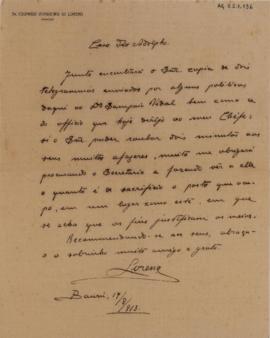 AQ 02.1.136
Caro Tio Adolpho
Junto encontrará o Snr. copia de dois
telegrammas enviados por alguns politicos
daqui ao Dr. Sampaio Vidal bem como a
do officio que hoje dirijo ao meu Chefe;
si o Snr. puder roubar dois minutos aos
seus muitos afazeres, muito me obrigará
procurando o Secretario e fazendo vêr a elle
o quanto é de sacrificio o posto que occu-
po, em um lugar como este, em que
se acha que os fins justificam os meios.
Recommendando-se aos seus, abraça-
o o sobrinho muito amigo e grato
Lorena
Baurú, 17/9/913.